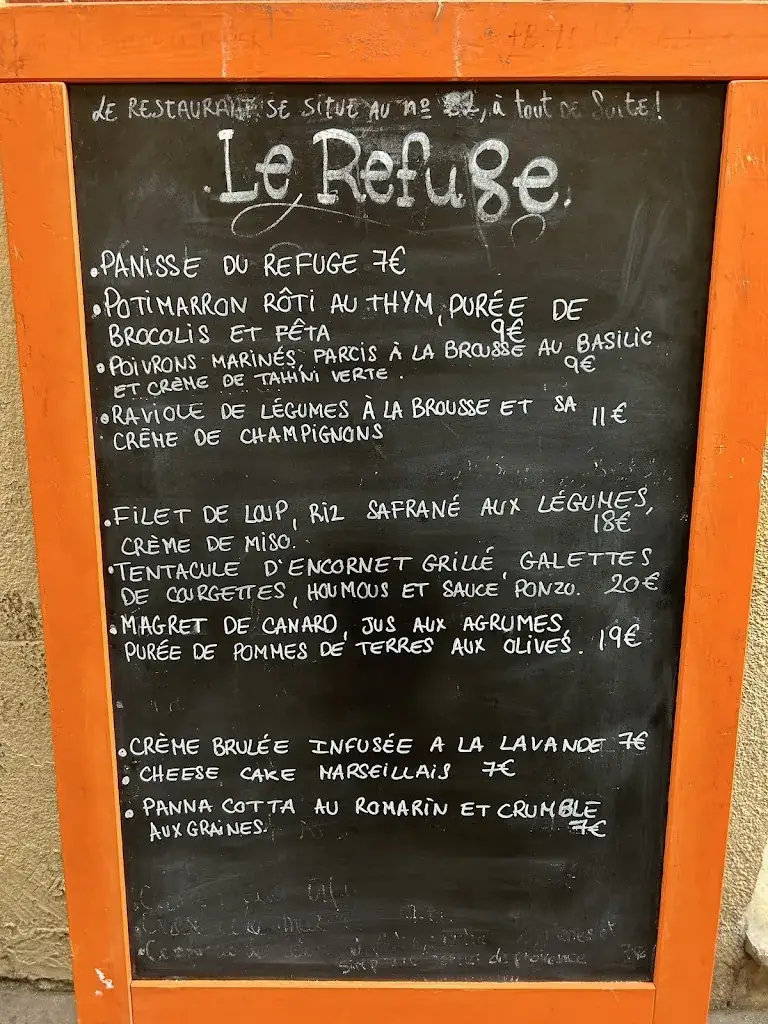 LE RESTAURANT SE SITUE AU nº , à tout de suite!
Le Refuge.
• PANISSE DU REFUGE 7€
• POTIMARRON RÔTI AU THYM, PURÉE DE
BROCOLIS ET FÊTA 9€
• POIVRONS MARINÉS, FARCIS À LA BROUSSE AU BASILIC
ET CRÈME DE TAHINI VERTE. 9€
• RAVIOLE DE LÉGUMES À LA BROUSSE ET SA 11€
CRÈME DE CHAMPIGNONS
• FILET DE LOUP, RIZ SAFRANÉ AUX LÉGUMES,
CRÈME DE MISO. 18€
• TENTACULE D'ENCORNET GRILLÉ, GALETTES
DE COURGETTES, HOUMOUS ET SAUCE PONZO. 20€
• MAGRET DE CANARD, JUS AUX AGRUMES,
PURÉE DE POMMES DE TERRES AUX OLIVES. 19€
• CRÈME BRULÉE INFUSÉE A LA LAVANDE 7€
• CHEESE CAKE MARSEILLAIS 7€
• PANNA COTTA AU ROMARIN ET CRUMBLE
AUX GRAINES. 7€